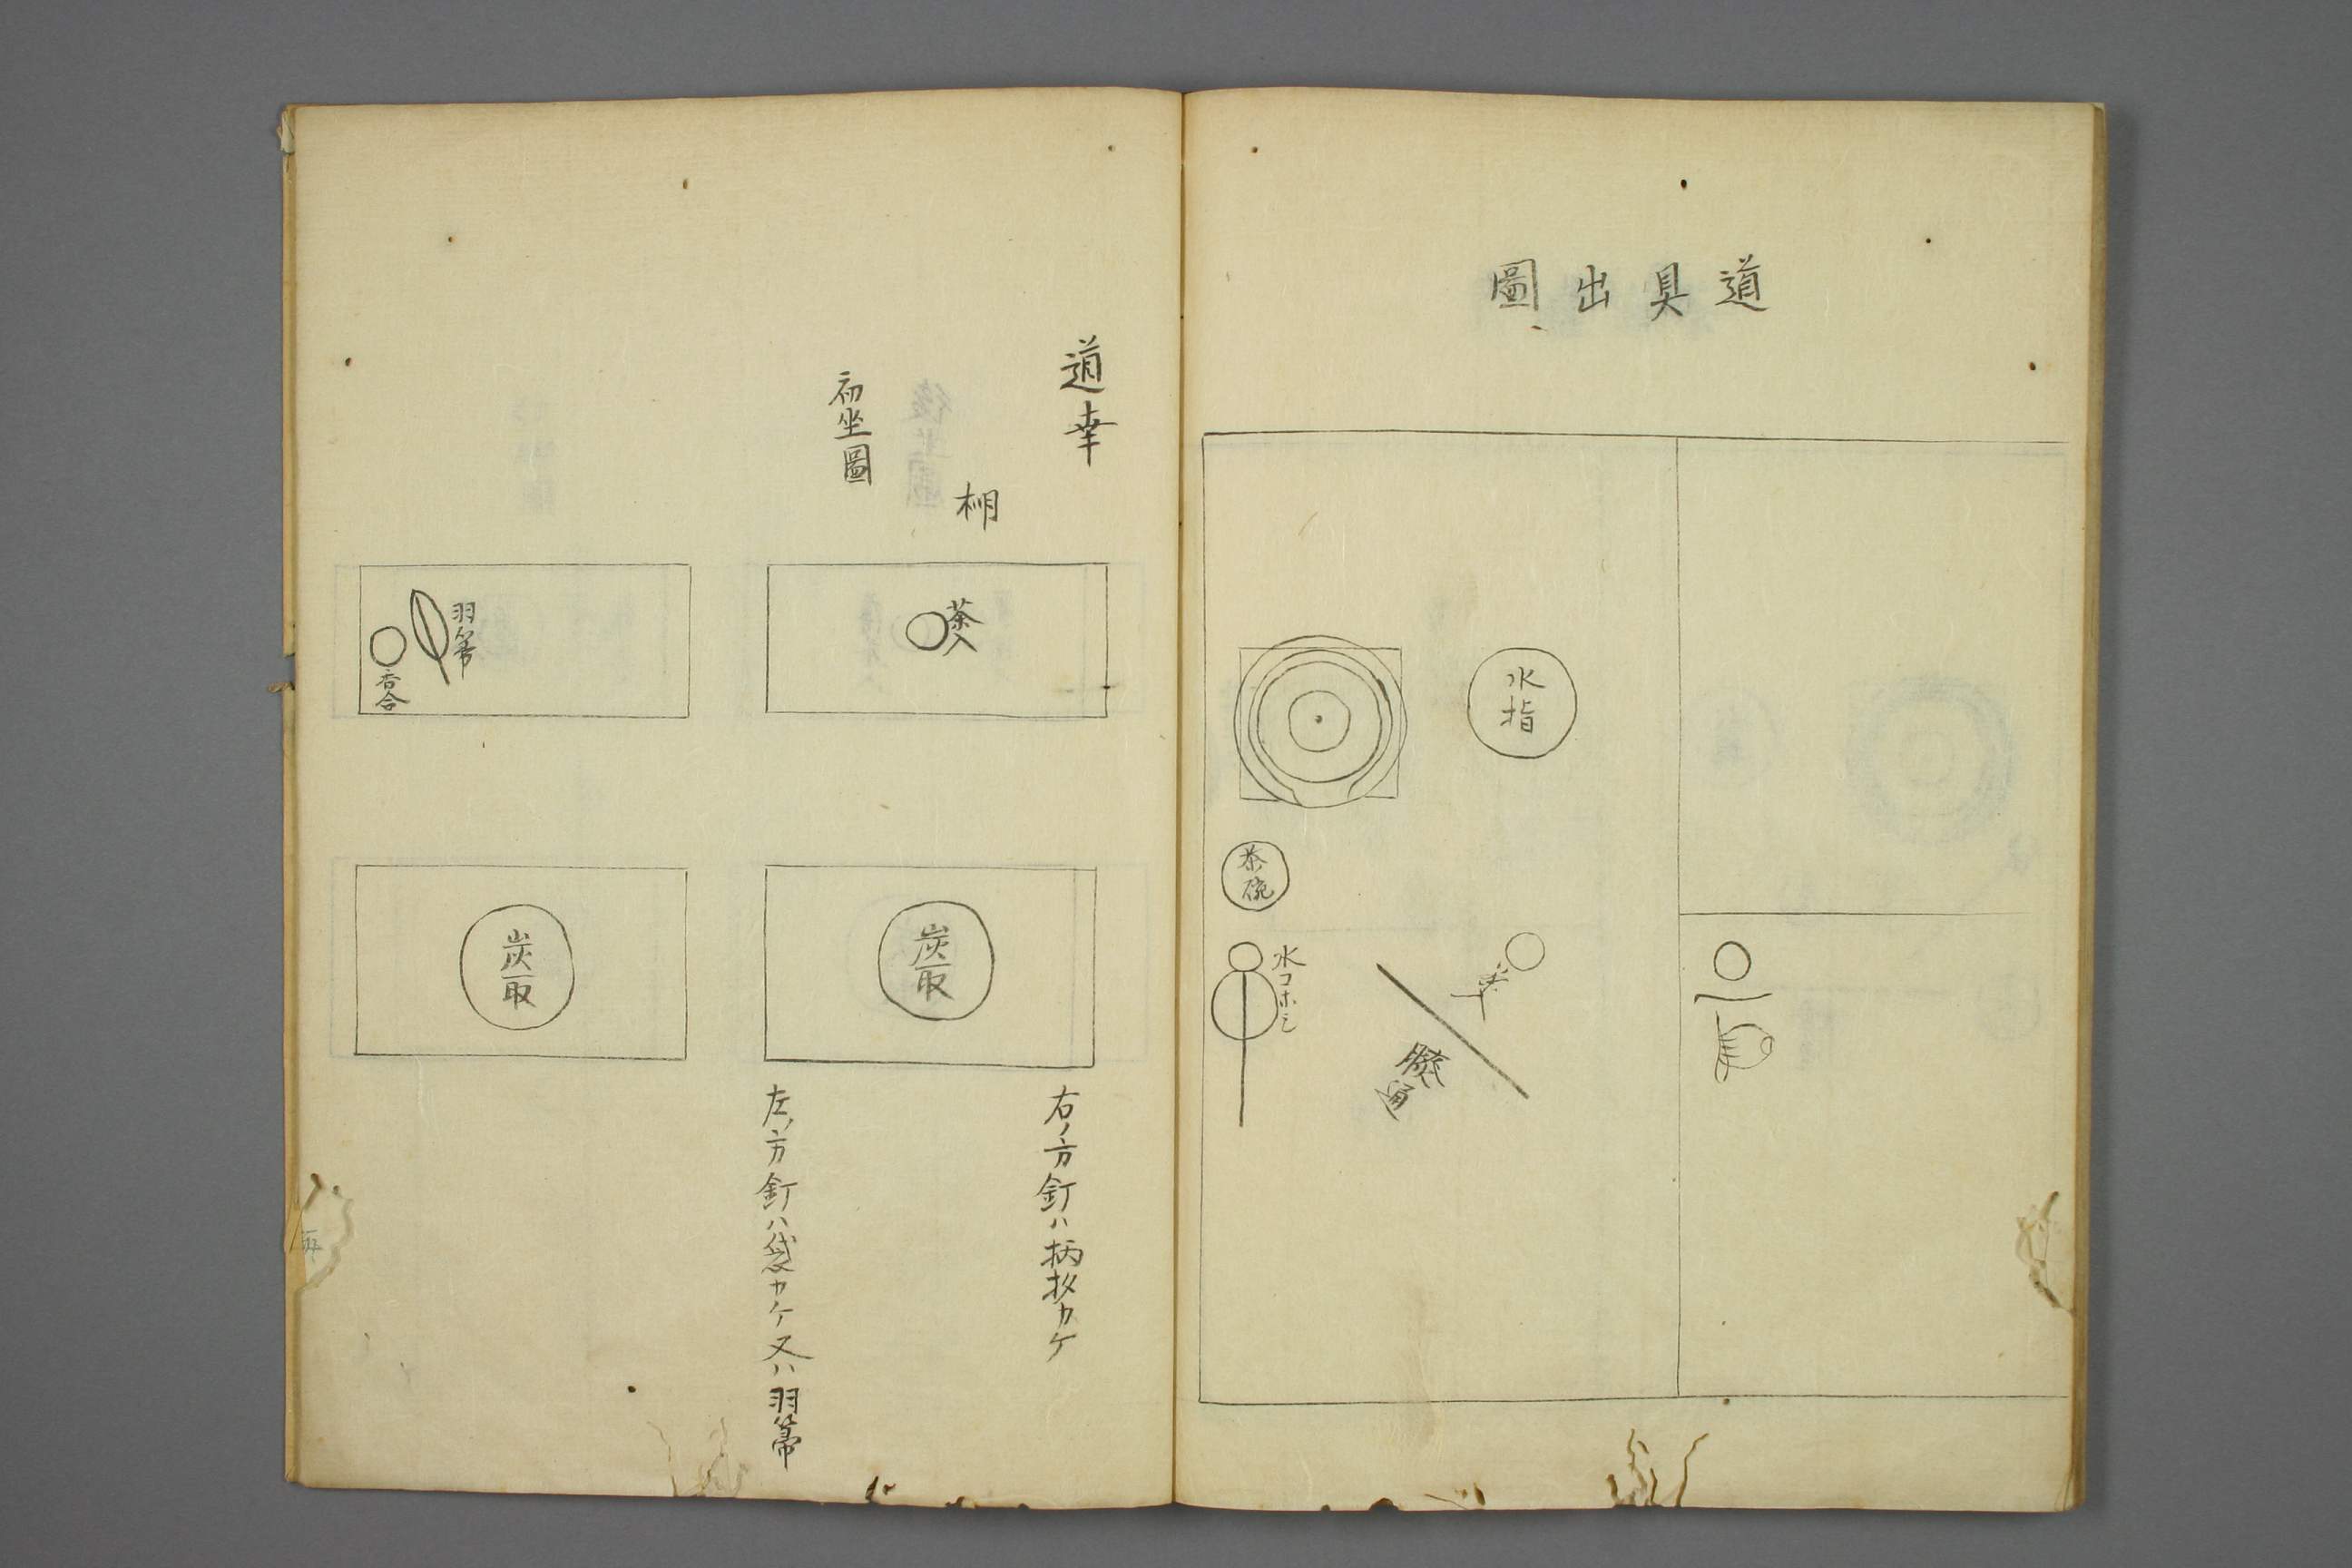 道具出圖
水指
茶碗
水コホシ
茶入
膝通
道幸
棚
初坐圖
茶入
炭取
右ノ方釘ハ柄杓カケ
左ノ方釘ハ袋カケ又ハ羽箒
羽箒
香合
炭取